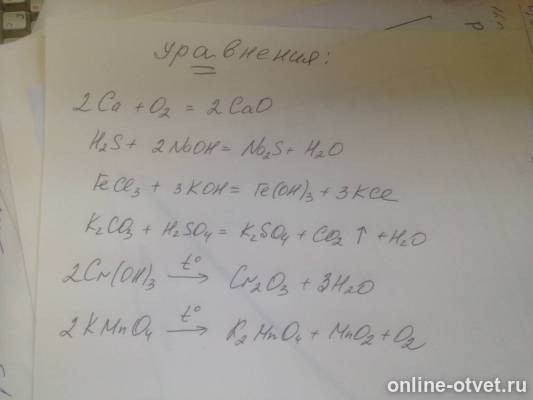 уравнения:
2Ca + O₂ = 2CaO
H₂S + 2NaOH = Na₂S + H₂O
FeCl₃ + 3KOH = Fe(OH)₃ + 3KCl
K₂CO₃ + H₂SO₄ = K₂SO₄ + CO₂ ↑ + H₂O
2Cr(OH)₃ —t°→ Cr₂O₃ + 3H₂O
2KMnO₄ —t°→ K₂MnO₄ + MnO₂ + O₂
online-otvet.ru